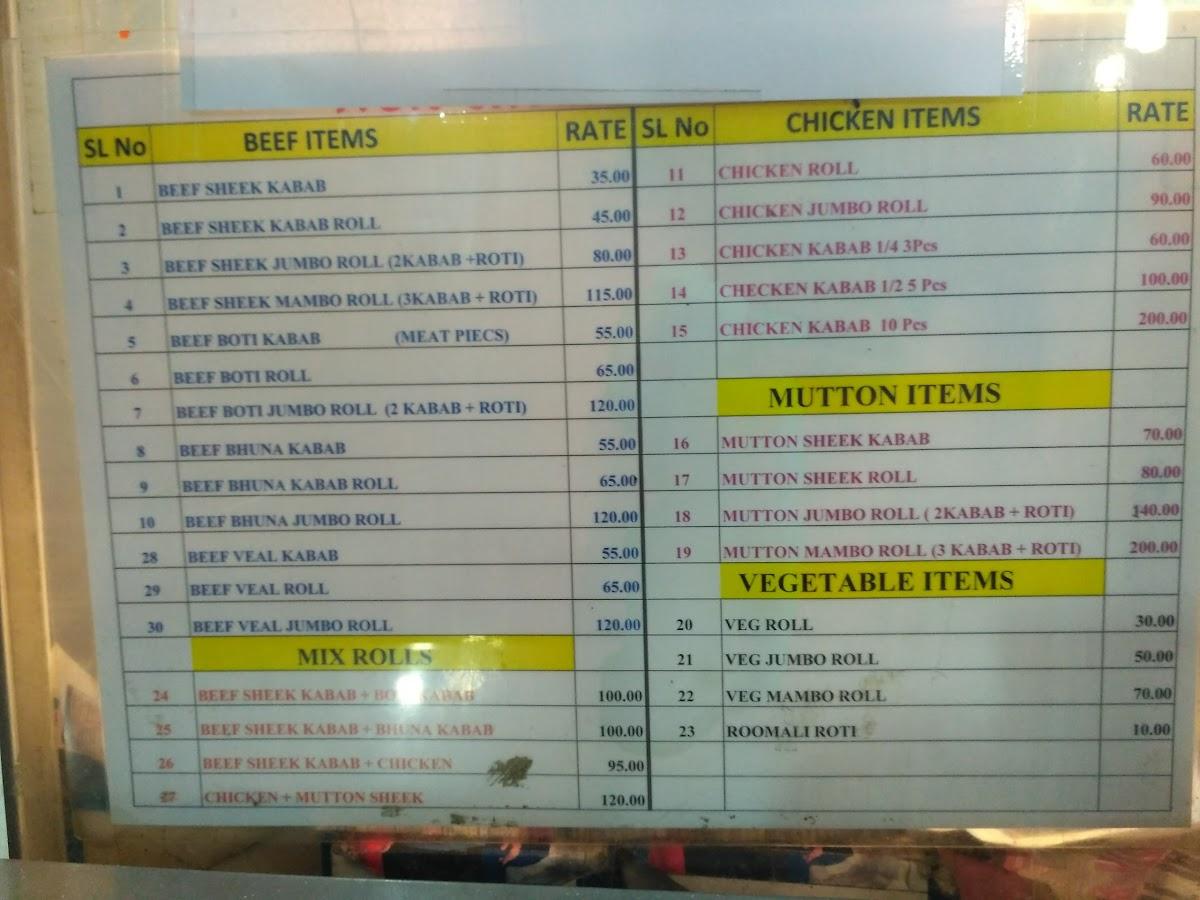 SL No BEEF ITEMS RATE
1 BEEF SHEEK KABAB 35.00
2 BEEF SHEEK KABAB ROLL 45.00
3 BEEF SHEEK JUMBO ROLL (2KABAB +ROTI) 80.00
4 BEEF SHEEK MAMBO ROLL (3KABAB + ROTI) 115.00
5 BEEF BOTI KABAB (MEAT PIECS) 55.00
6 BEEF BOTI ROLL 65.00
7 BEEF BOTI JUMBO ROLL (2 KABAB + ROTI) 120.00
8 BEEF BHUNA KABAB 55.00
9 BEEF BHUNA KABAB ROLL 65.00
10 BEEF BHUNA JUMBO ROLL 120.00
28 BEEF VEAL KABAB 55.00
29 BEEF VEAL ROLL 65.00
30 BEEF VEAL JUMBO ROLL 120.00
MIX ROLLS
24 BEEF SHEEK KABAB + BOTI KABAB 100.00
25 BEEF SHEEK KABAB + BHUNA KABAB 100.00
26 BEEF SHEEK KABAB + CHICKEN 95.00
27 CHICKEN + MUTTON SHEEK 120.00
SL No CHICKEN ITEMS RATE
11 CHICKEN ROLL 60.00
12 CHICKEN JUMBO ROLL 90.00
13 CHICKEN KABAB 1/4 3Pcs 60.00
14 CHECKEN KABAB 1/2 5 Pcs 100.00
15 CHICKEN KABAB 10 Pcs 200.00
MUTTON ITEMS
16 MUTTON SHEEK KABAB 70.00
17 MUTTON SHEEK ROLL 80.00
18 MUTTON JUMBO ROLL ( 2KABAB + ROTI) 140.00
19 MUTTON MAMBO ROLL (3 KABAB + ROTI) 200.00
VEGETABLE ITEMS
20 VEG ROLL 30.00
21 VEG JUMBO ROLL 50.00
22 VEG MAMBO ROLL 70.00
23 ROOMALI ROTI 10.00